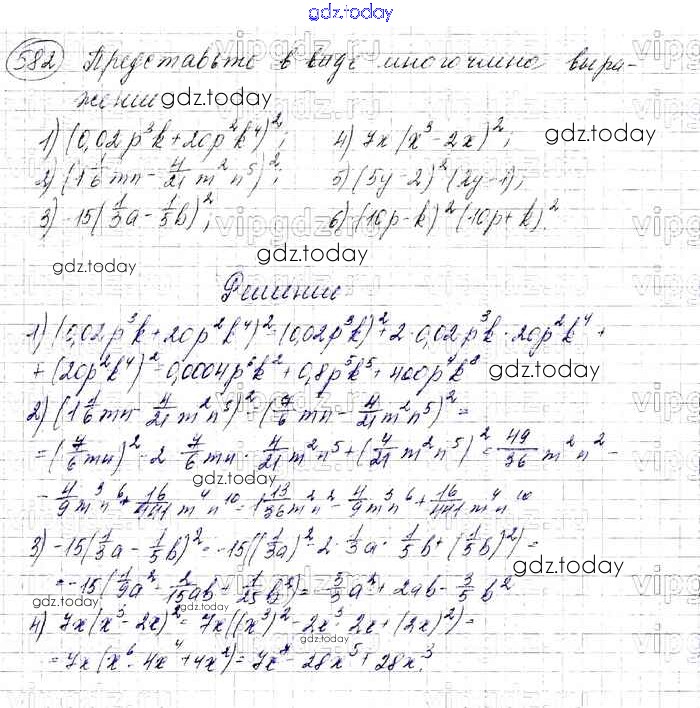 gdz.today
582 Представьте в виде многочлена выра-
жение gdz.today
1) (0,02p³k+20p²k⁴)²; 4) 7x(x³-2x)²; gdz.today
2) (1 1/6 mn - 4/21 m²n⁵)²; 5) (5y-2)²(2y-1);
3) -15(1/3 a - 1/5 b)²; 6) (10p-k)²(10p+k)².
gdz.today gdz.today
Решение.
1) (0,02p³k+20p²k⁴)²=(0,02p³k)²+2·0,02p³k·20p²k⁴+
+(20p²k⁴)²=0,0004p⁶k²+0,8p⁵k⁵+400p⁴k⁸ gdz.today
2) (1 1/6 mn - 4/21 m²n⁵)²=(7/6 mn - 4/21 m²n⁵)²=
=(7/6 mn)²-2·7/6 mn·4/21 m²n⁵+(4/21 m²n⁵)²=49/36 m²n²-
-4/9 m³n⁶+16/441 m⁴n¹⁰=1 13/36 m²n²-4/9 m³n⁶+16/441 m⁴n¹⁰
3) -15(1/3 a - 1/5 b)²=-15((1/3 a)²-2·1/3 a·1/5 b+(1/5 b)²)=
=-15(1/9 a²-2/15 ab+1/25 b²)=-5/3 a²+2ab-3/5 b² gdz.today
gdz.today gdz.today
4) 7x(x³-2x)²=7x((x³)²-2x³·2x+(2x)²)=
=7x(x⁶-4x⁴+4x²)=7x⁷-28x⁵+28x³.
gdz.today
vipgdz.ru